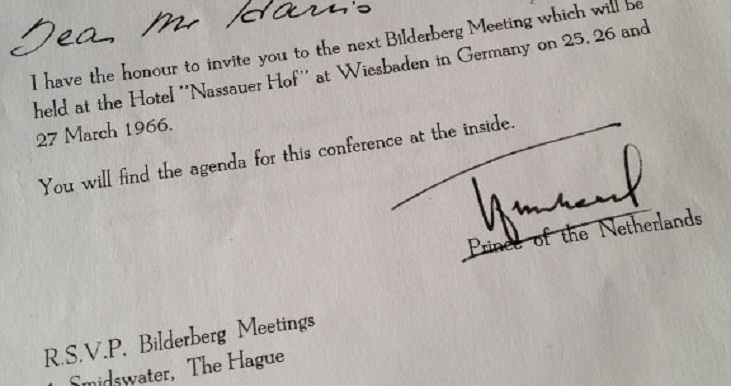 Dear Mr Harris
I have the honour to invite you to the next Bilderberg Meeting which will be
held at the Hotel "Nassauer Hof" at Wiesbaden in Germany on 25, 26 and
27 March 1966.
You will find the agenda for this conference at the inside.
Prince of the Netherlands
R.S.V.P. Bilderberg Meetings
Smidswater, The Hague